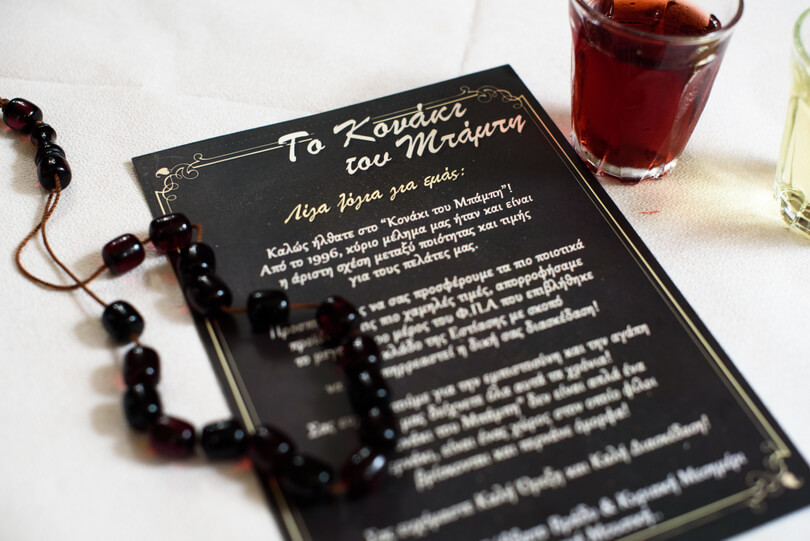 Το Κονάκι
του Μπάμπη
Λίγα λόγια για εμάς:
Καλώς ήλθατε στο "Κονάκι του Μπάμπη"!
Από το 1996, κύριο μέλημα μας ήταν και είναι
η άριστη σχέση μεταξύ ποιότητας και τιμής
για τους πελάτες μας.
να σας προσφέρουμε τα πιο ποιοτικά
πιο χαμηλές τιμές, απορροφήσαμε
μέρος του Φ.Π.Α που επιβλήθηκε
κλάδο της Εστίασης με σκοπό
επηρρεαστεί η δική σας διασκέδαση!
για την εμπιστοσύνη και την αγάπη
μας δείχνετε όλα αυτά τα χρόνια!
του Μπάμπη" δεν είναι απλά ένα
είναι ένας χώρος στον οποίο φίλοι
βρίσκονται και περνάνε όμορφα!
Σας ευχόμαστε Καλή Όρεξη και Καλή Διασκέδαση!
& Κυριακή